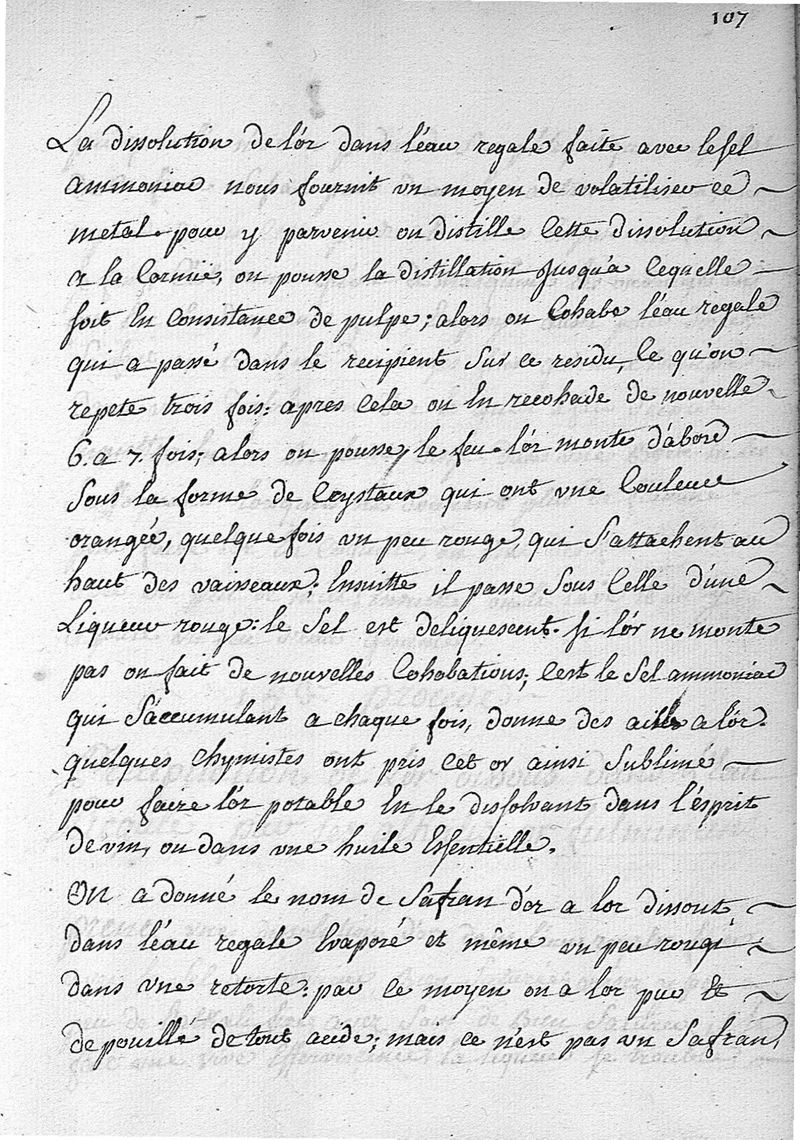 107
La dissolution de lór dans léau regale faite avec le sel
ammoniac nous fournit vn moyen de volatiliser ce
metal. pour y parvenir on distille cette dissolution
a la Cornuë, on pousse la distillation jusqu'a cequelle
soit En Consistance de pulpe; alors on Cohabe léau regale
qui a passé dans le recipient Sur ce residu, Ce qu'on
repete trois fois: apres Cela on En recohade de nouvelle
6. a 7. fois; alors on pousse le feu. lór monte d'abord
Sous la forme de Crystaux qui ont vne Couleur
orangée, quelque fois vn peu rouge, qui S'attachent au
haut des vaisseaux; Ensuitte il passe Sous Celle d'une
Liqueur rouge: le Sel est deliquescent. Si lór ne monte
pas on fait de nouvelles Cohobations; C'est le Sel ammoniac
qui S'accumulant a chaque fois, donne des ailes a lór.
quelques Chymistes ont pris Cet or ainsi Sublimé
pour faire lór potable En le dissolvant dans l'ésprit
de vin, ou dans vne huile Essentielle.
On a donné le nom de Safran d'or a lor dissout
dans léau regale Evaporé et même vn peu rougi
dans vne retorte: par ce moyen on a lor pur Et
de pouillé de tout acide; mais ce n'est pas vn Safran,